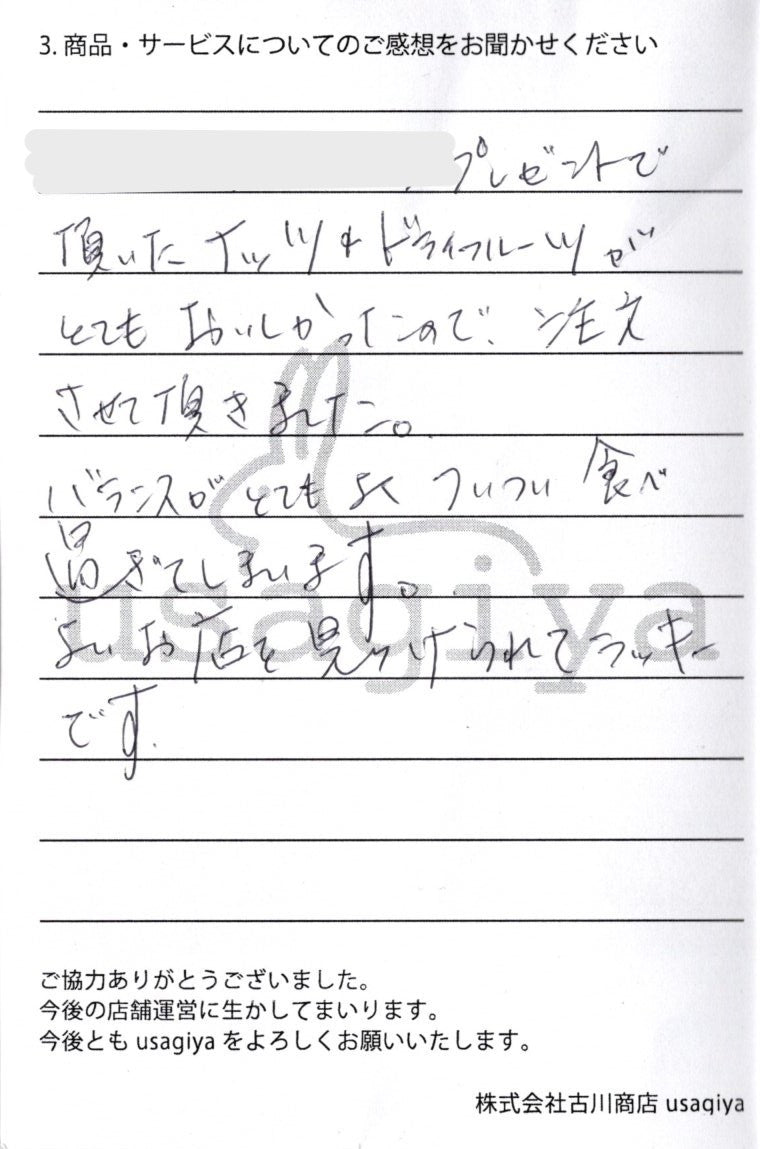 3. 商品・サービスについてのご感想をお聞かせください
プレゼントで
頂いた ナッツ&ドライフルーツが
とても おいしかったので、注文
させて頂きました。
バランスが とても よく ついつい 食べ
過ぎてしまいます。
usagiya
よいお店を見つけられてラッキー
です.
ご協力ありがとうございました。
今後の店舗運営に生かしてまいります。
今後とも usagiya をよろしくお願いいたします。
株式会社古川商店 usagiya